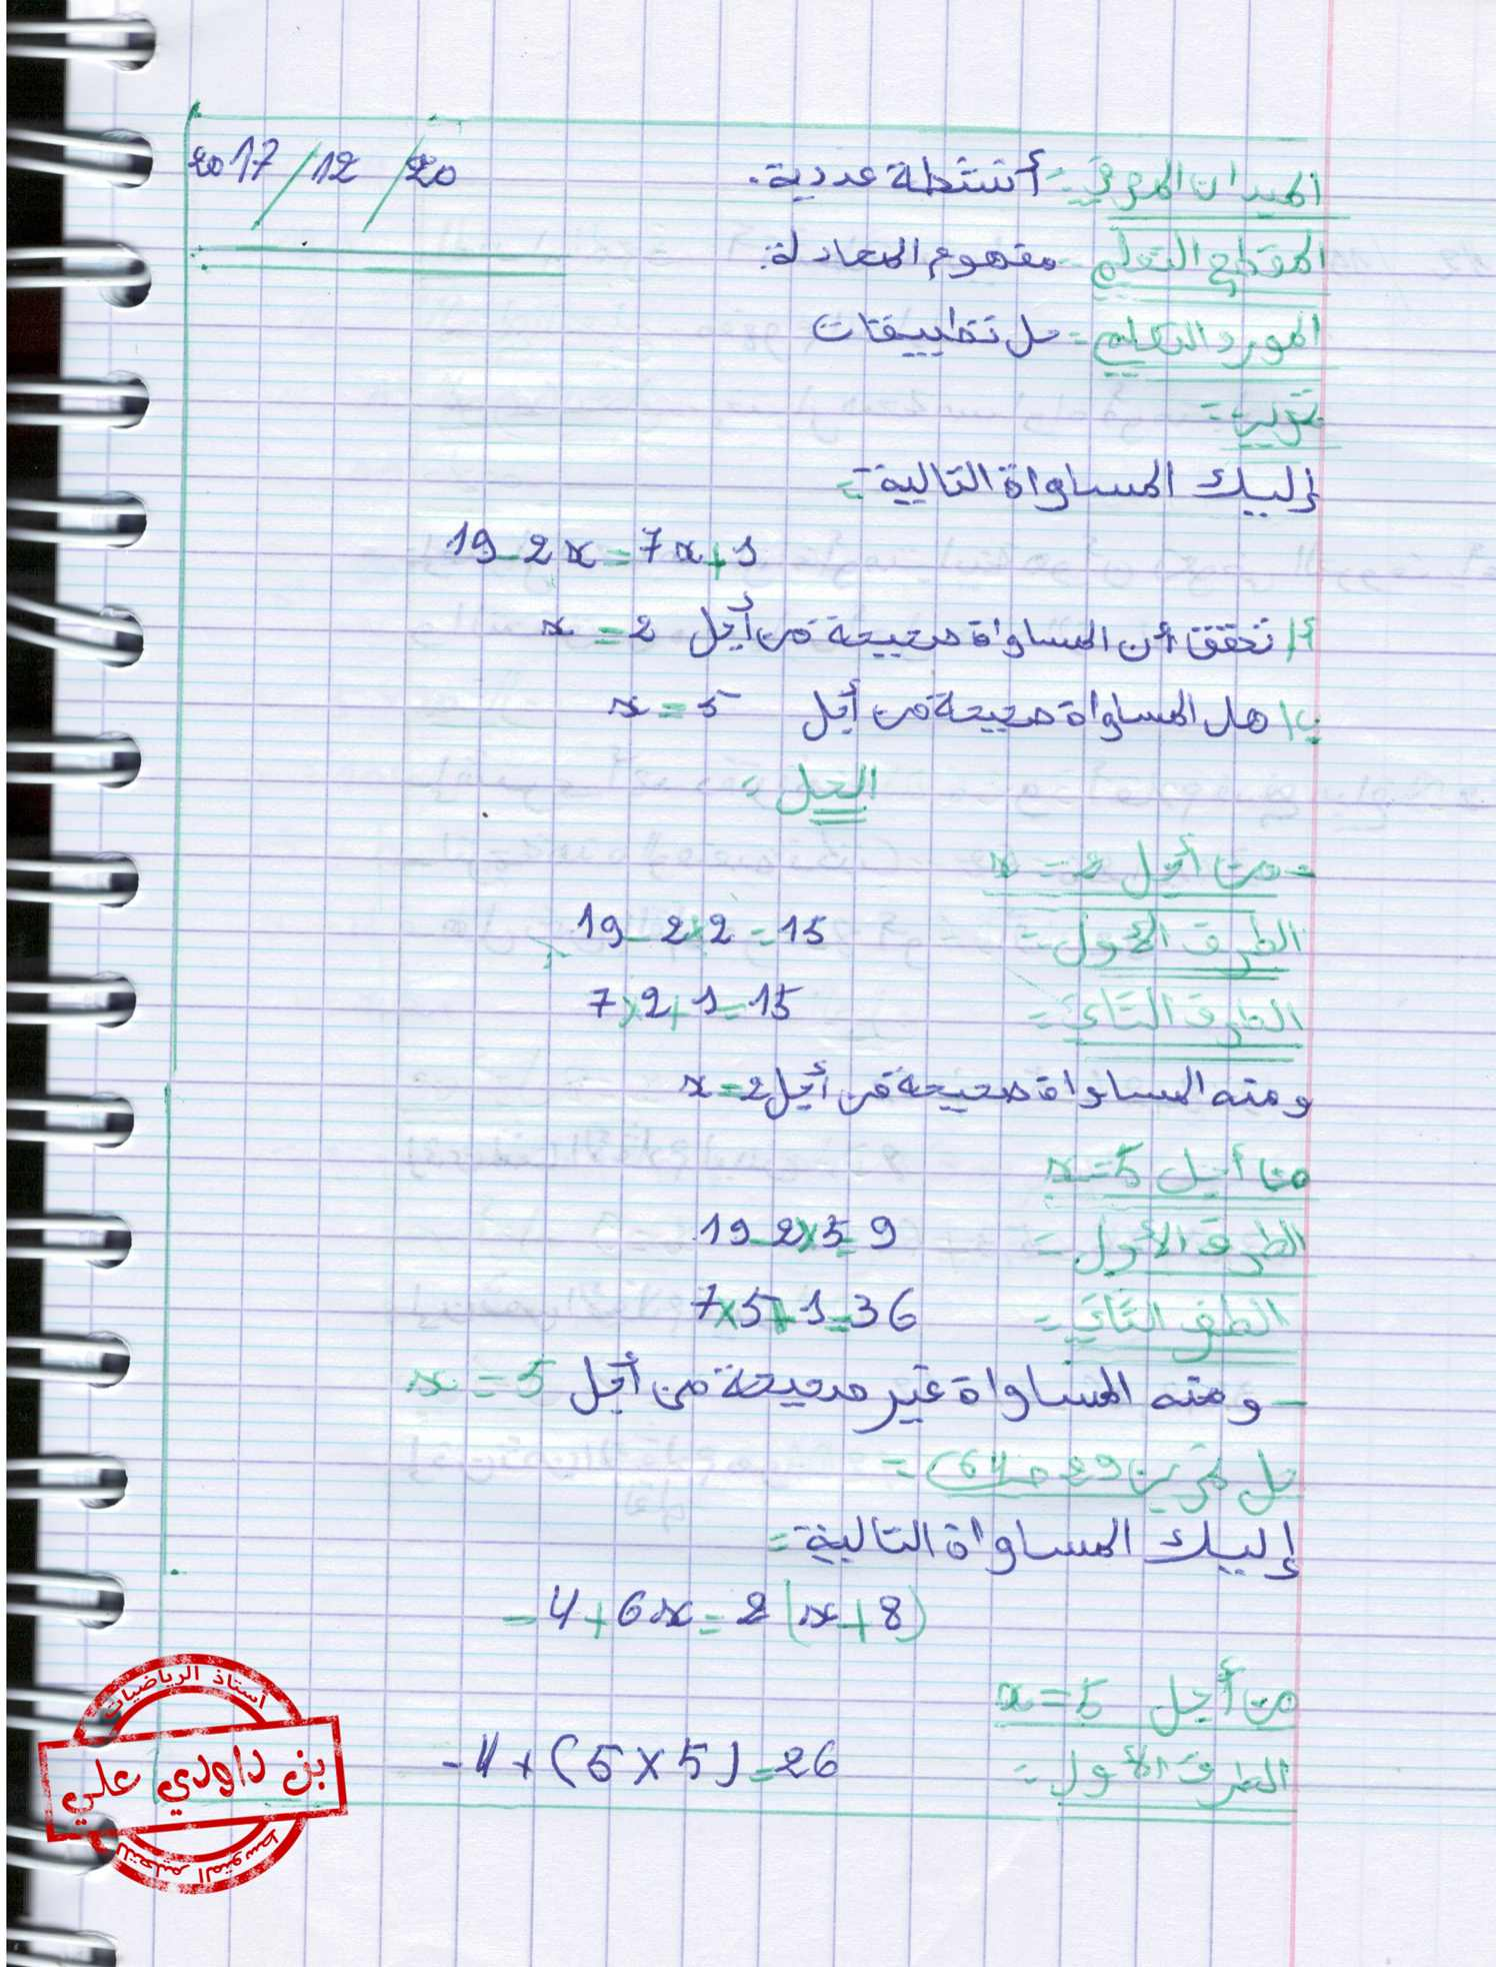 2017/12/20
الميدان المعرفي = أنشطة عددية.
المقطع التعلمي = مفهوم المعادلة.
المورد التعلمي = حل تطبيقات
تمرين =
إليك المساواة التالية =
19-2x=7x+1
أ/ تحقق أن المساواة صحيحة من أجل x=2
ب/ هل المساواة صحيحة من أجل x=5
الحل =
- من أجل x=2
الطرف الأول = 19-2×2=15
الطرف الثاني = 7×2+1=15
ومنه المساواة صحيحة من أجل x=2
من أجل x=5
الطرف الأول = 19-2×5=9
الطف الثاني = 7×5+1=36
- ومنه المساواة غير صحيحة من أجل x=5
حل تمرين 29 ص 64 =
إليك المساواة التالية =
-4+6x=2(x+8)
من أجل x=5
الطرف الأول = -4+(6×5)=26
أستاذ الرياضيات
بن داودي علي
للتعليم المتوسط